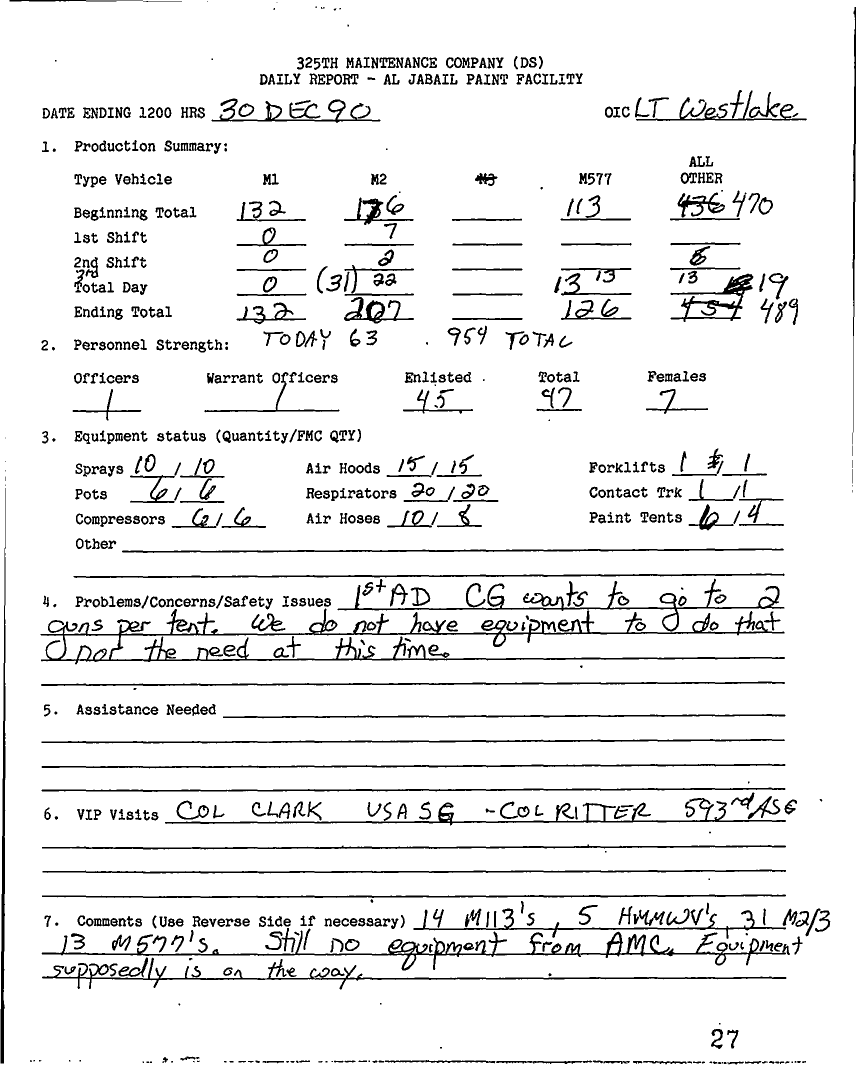 325TH MAINTENANCE COMPANY (DS)
DAILY REPORT - AL JABAIL PAINT FACILITY
DATE ENDING 1200 HRS 30 DEC 90 OIC LT Westlake
1. Production Summary:
ALL
Type Vehicle M1 M2 M3 M577 OTHER
Beginning Total 132 176 113 436 470
1st Shift 0 7
2nd Shift 0 2 6
3rd
Total Day 0 (31) 22 13 13 13 19
Ending Total 132 207 126 454 489
TODAY 63 . 954 TOTAL
2. Personnel Strength:
Officers Warrant Officers Enlisted Total Females
1 1 45 47 7
3. Equipment status (Quantity/FMC QTY)
Sprays 10 / 10 Air Hoods 15 / 15 Forklifts 1 / 1
Pots 6 / 6 Respirators 20 / 20 Contact Trk 1 / 1
Compressors 6 / 6 Air Hoses 10 / 8 Paint Tents 6 / 4
Other
4. Problems/Concerns/Safety Issues 1st AD CG wants to go to 2
guns per tent. We do not have equipment to do that
nor the need at this time.
5. Assistance Needed
6. VIP Visits COL CLARK USA SG - COL RITTER 593rd ASG
7. Comments (Use Reverse Side if necessary) 14 M113's, 5 HMMWV's, 31 M2/3
13 M577's. Still no equipment from AMC. Equipment
supposedly is on the way.
27